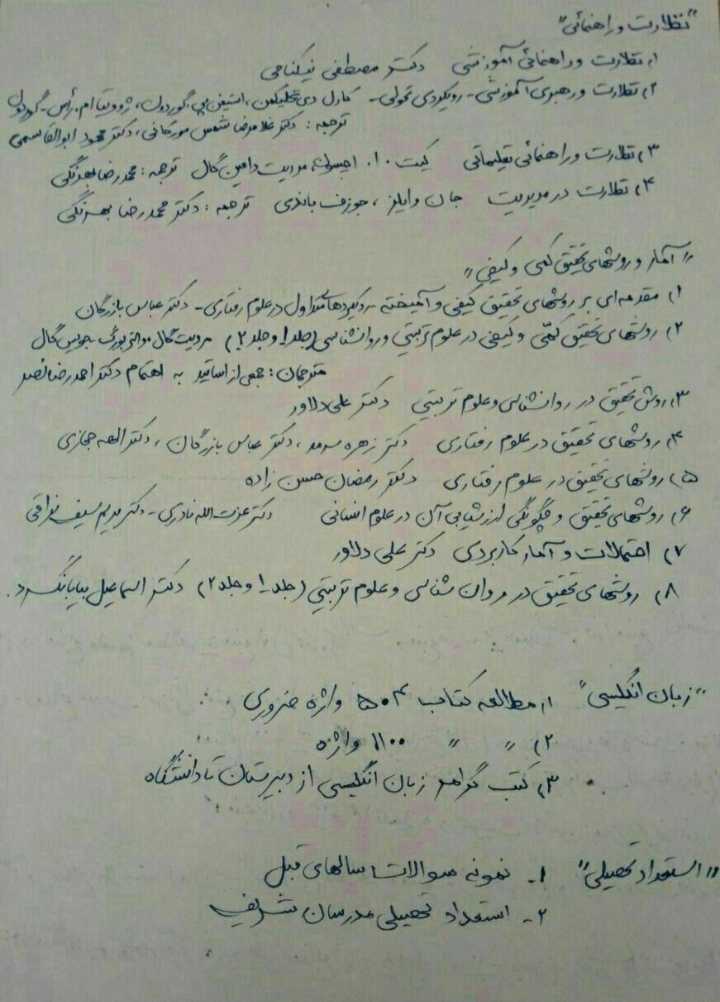 "نظارت و راهنمائی"
۱، نظارت و راهنمائی آموزشی دکتر مصطفی نیکنامی
۲، نظارت و رهبری آموزشی - رویکردی تحولی - کارل دی گلیکمن، استیفن پی گوردون، ژوویتا ام، راس - گوردون
ترجمه: دکتر غلامرضا شمس مورکانی، دکتر محمود ابوالقاسمی
۳، نظارت و راهنمائی تعلیماتی کیت ا. اچسون، مردیت دامین گال ترجمه: محمد رضا بهرنگی
۴، نظارت در مدیریت جان وایلز، جوزف باندی ترجمه: دکتر محمد رضا بهرنگی
"آمار و روشهای تحقیق کمی و کیفی"
۱، مقدمه ای بر روشهای تحقیق کیفی و آمیخته - رویکردهای متداول در علوم رفتاری - دکتر عباس بازرگان
۲، روشهای تحقیق کمّی و کیفی در علوم تربیتی و روانشناسی (جلد ۱ و جلد ۲) مردیت گال، والتر بورگ، جویس گال
مترجمان: جمعی از اساتید به اهتمام دکتر احمد رضا نصر
۳، روش تحقیق در روانشناسی و علوم تربیتی دکتر علی دلاور
۴، روشهای تحقیق در علوم رفتاری دکتر زهره سرمد، دکتر عباس بازرگان، دکتر الهه حجازی
۵، روشهای تحقیق در علوم رفتاری دکتر رمضان حسن زاده
۶، روشهای تحقیق و چگونگی ارزشیابی آن در علوم انسانی دکتر عزت الله نادری - دکتر مریم سیف نراقی
۷، احتمالات و آمار کاربردی دکتر علی دلاور
۸، روشهای تحقیق در روان شناسی و علوم تربیتی (جلد ۱ و جلد ۲) دکتر اسماعیل بیابانگرد.
"زبان انگلیسی" ۱، مطالعه کتاب ۵۰۴ واژه ضروری
۲، " " ۱۱۰۰ واژه
۳، کتب گرامر زبان انگلیسی از دبیرستان تا دانشگاه
"استعداد تحصیلی" ۱- نمونه سوالات سالهای قبل
۲- استعداد تحصیلی مدرسان شریف